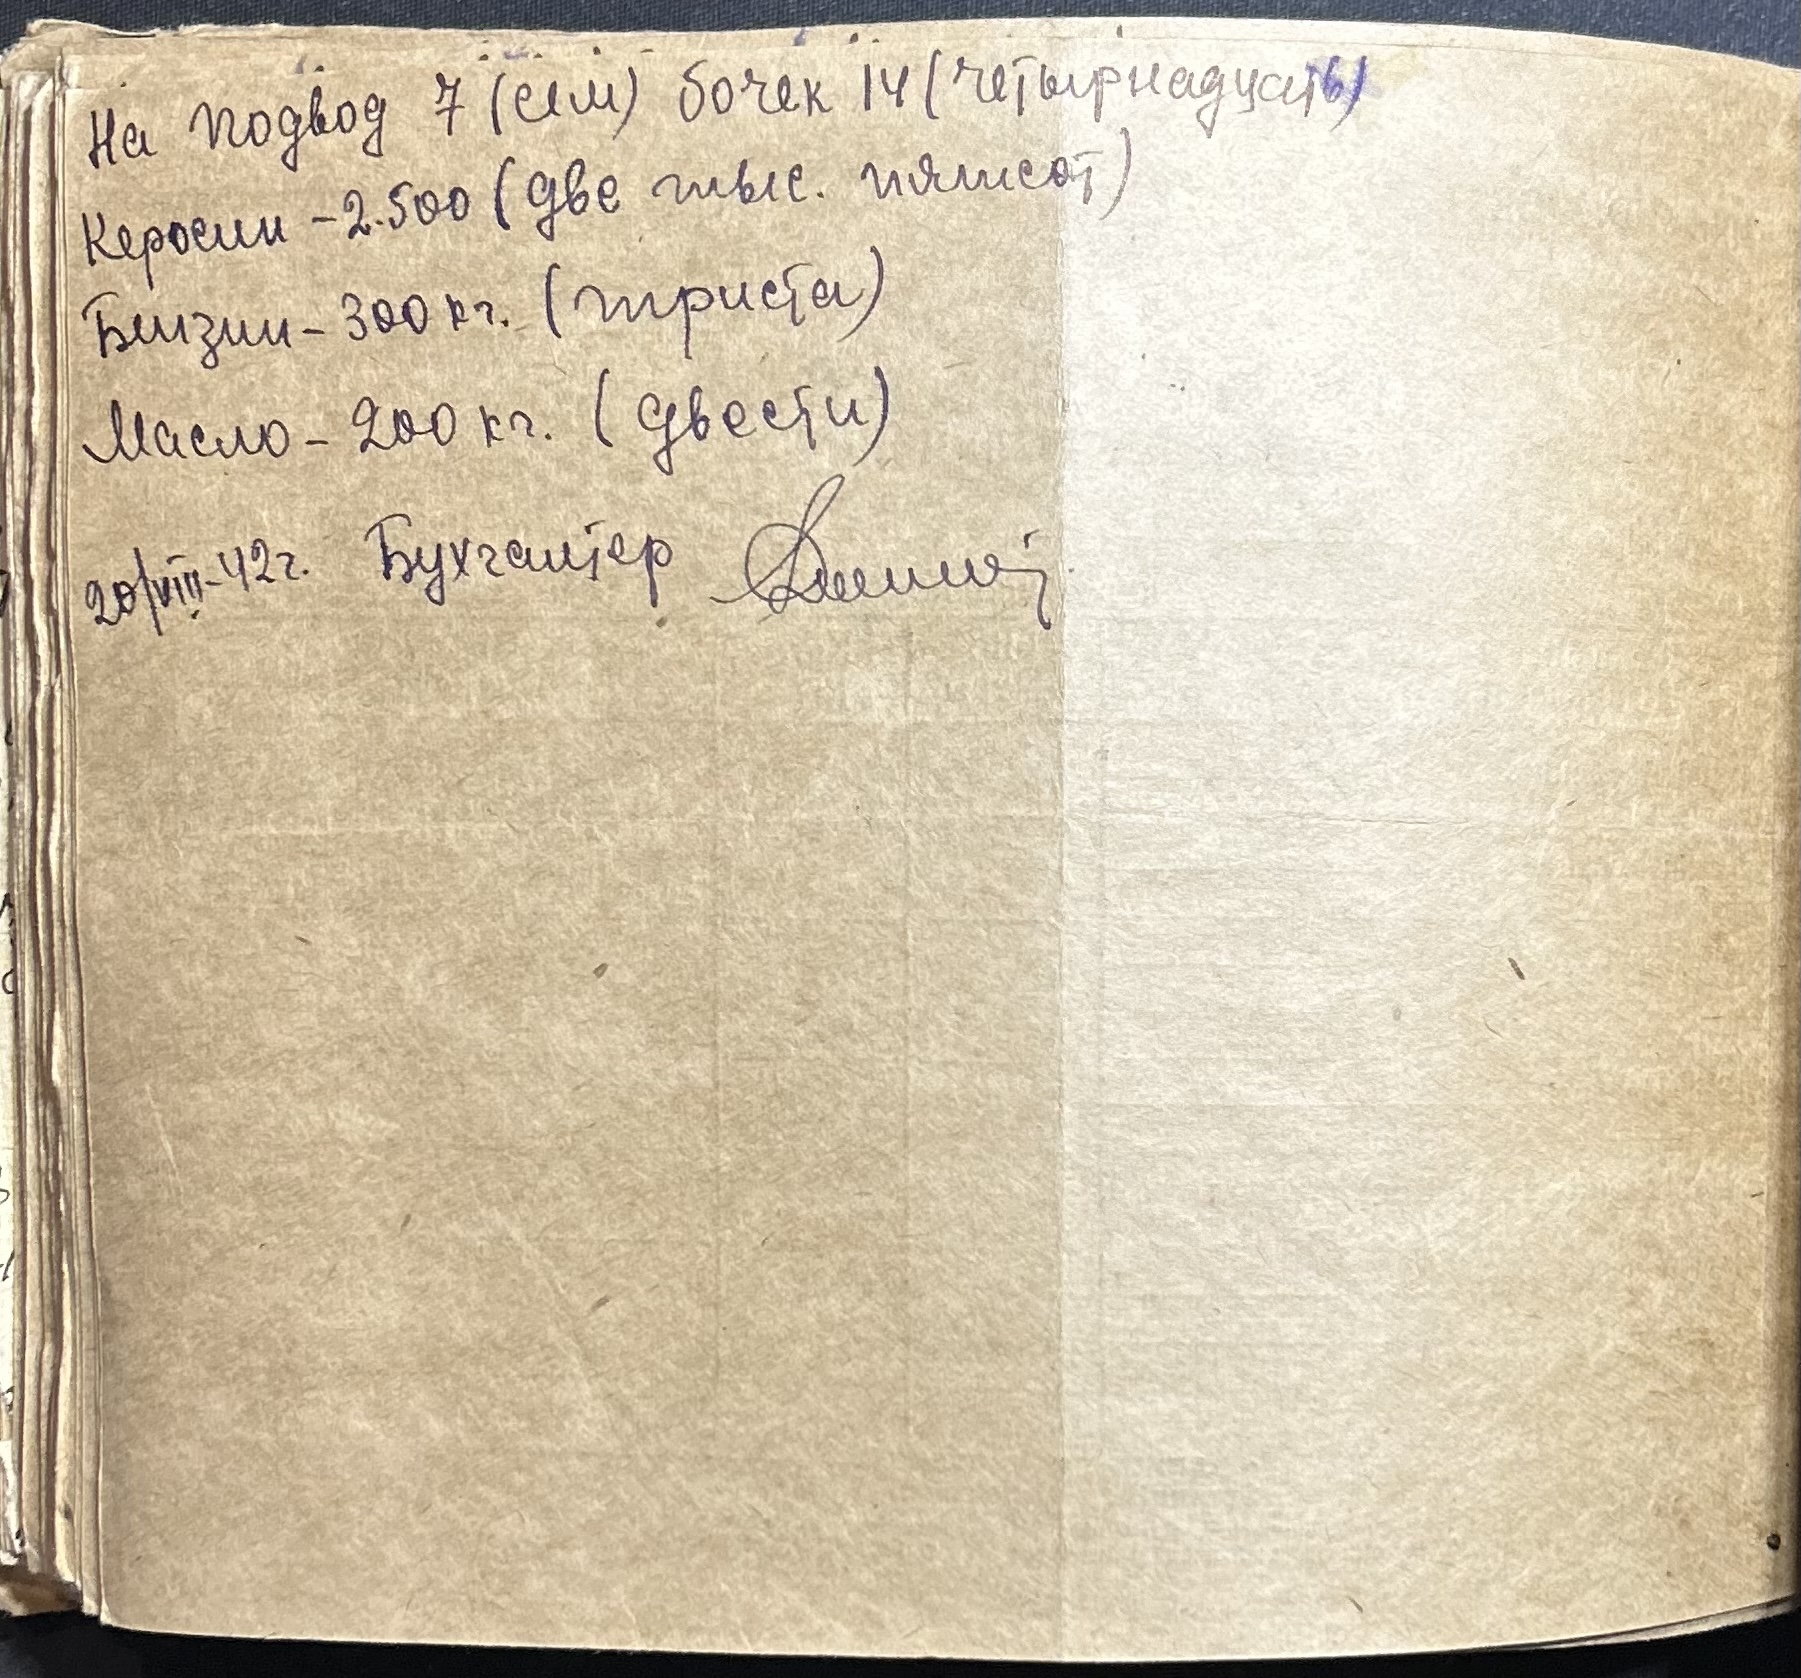 На подвод 7 (сем) бочек 14 (четырнадцать)
Керосин - 2.500 (две тыс. пятсот)
Бензин - 300 кг. (триста)
Масло - 200 кг. (двести)
20/VIII-42 г. Бухгалтер